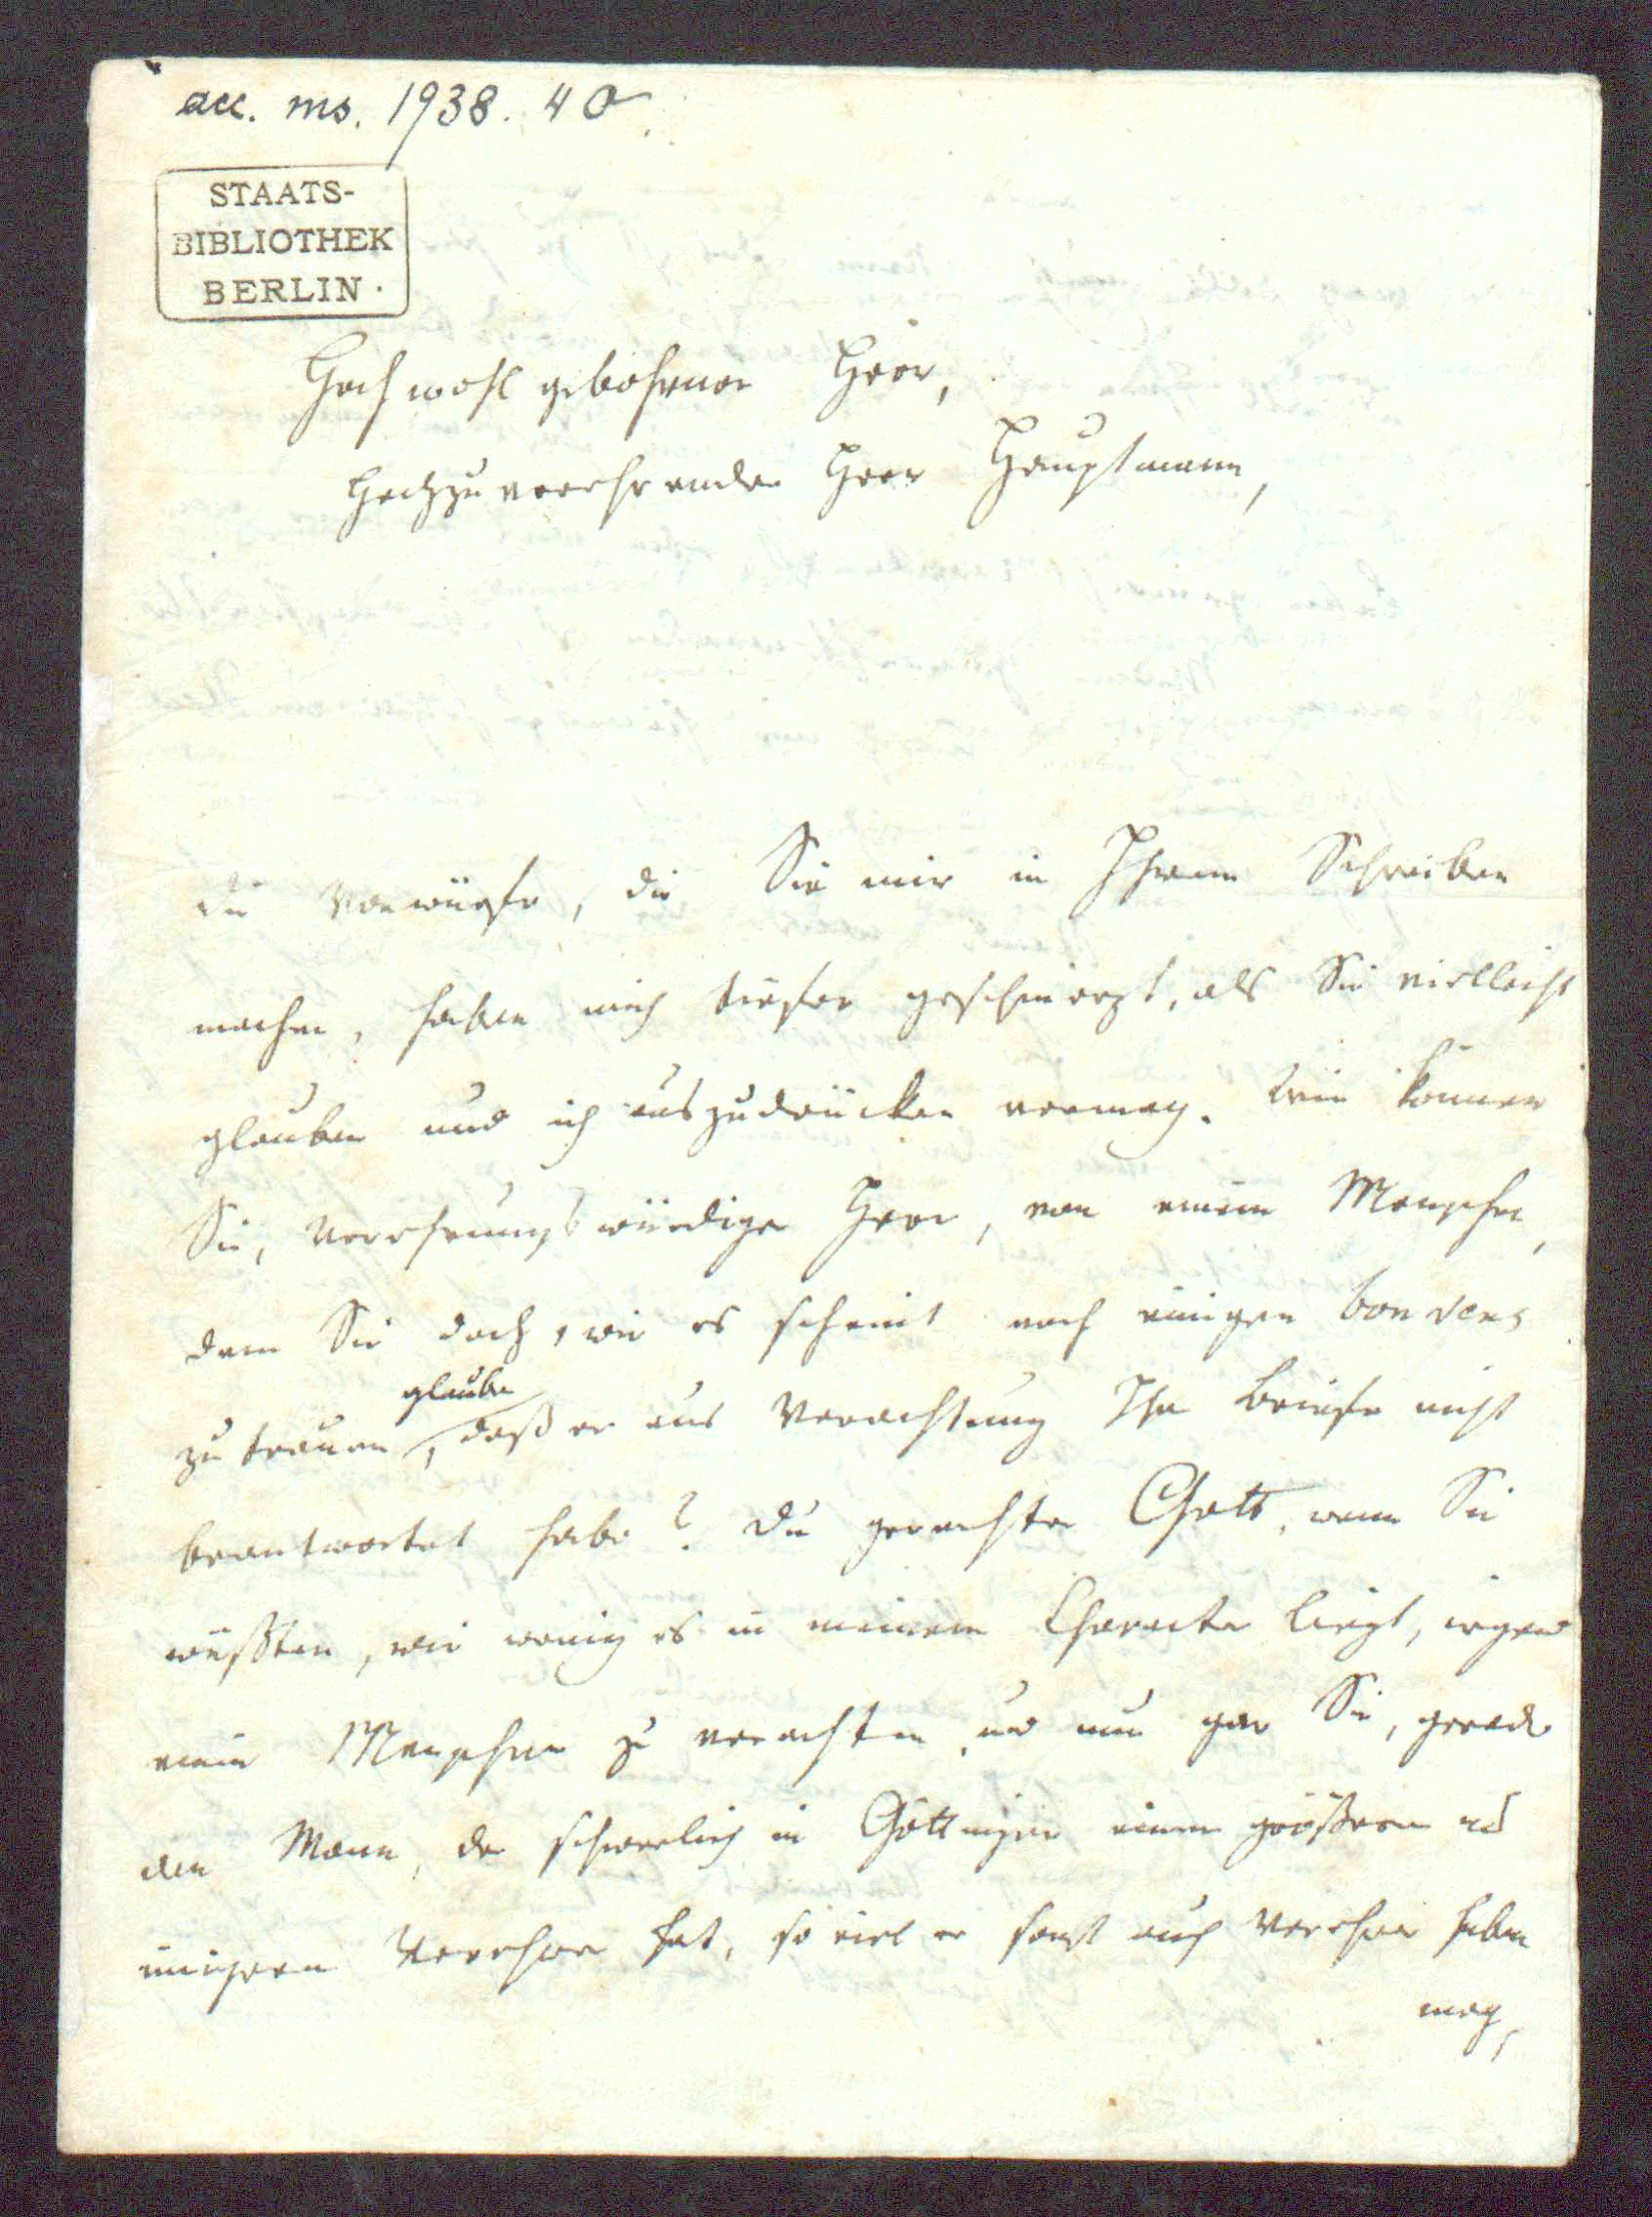 acc. ms. 1938. 40.
STAATS-
BIBLIOTHEK
BERLIN.
Hochwohlgebohrner Herr,
Hochzuverehrender Herr Hauptmann,
die Vorwürfe, die Sie mir in Ihrem Schreiben
machen, haben mich tiefer geschmerzt, als Sie vielleicht
glauben und ich auszudrücken vermag. Wie können
Sie, Verehrungswürdiger Herr, von einem Menschen,
dem Sie doch, wie es scheint noch einigen bon sens
zu trauen, glauben
daß er aus Verachtung Ihre Briefe nicht
beantwortet habe? Du gerechter Gott, wenn Sie
wüßten, wie wenig es in meinem Character liegt, irgend
einen Menschen zu verachten, und nun gar Sie, gerade
den Mann, der schwerlich in Göttingen einen größern und
innigern Verehrer hat, so viel er sonst auch Verehrer haben
mag,